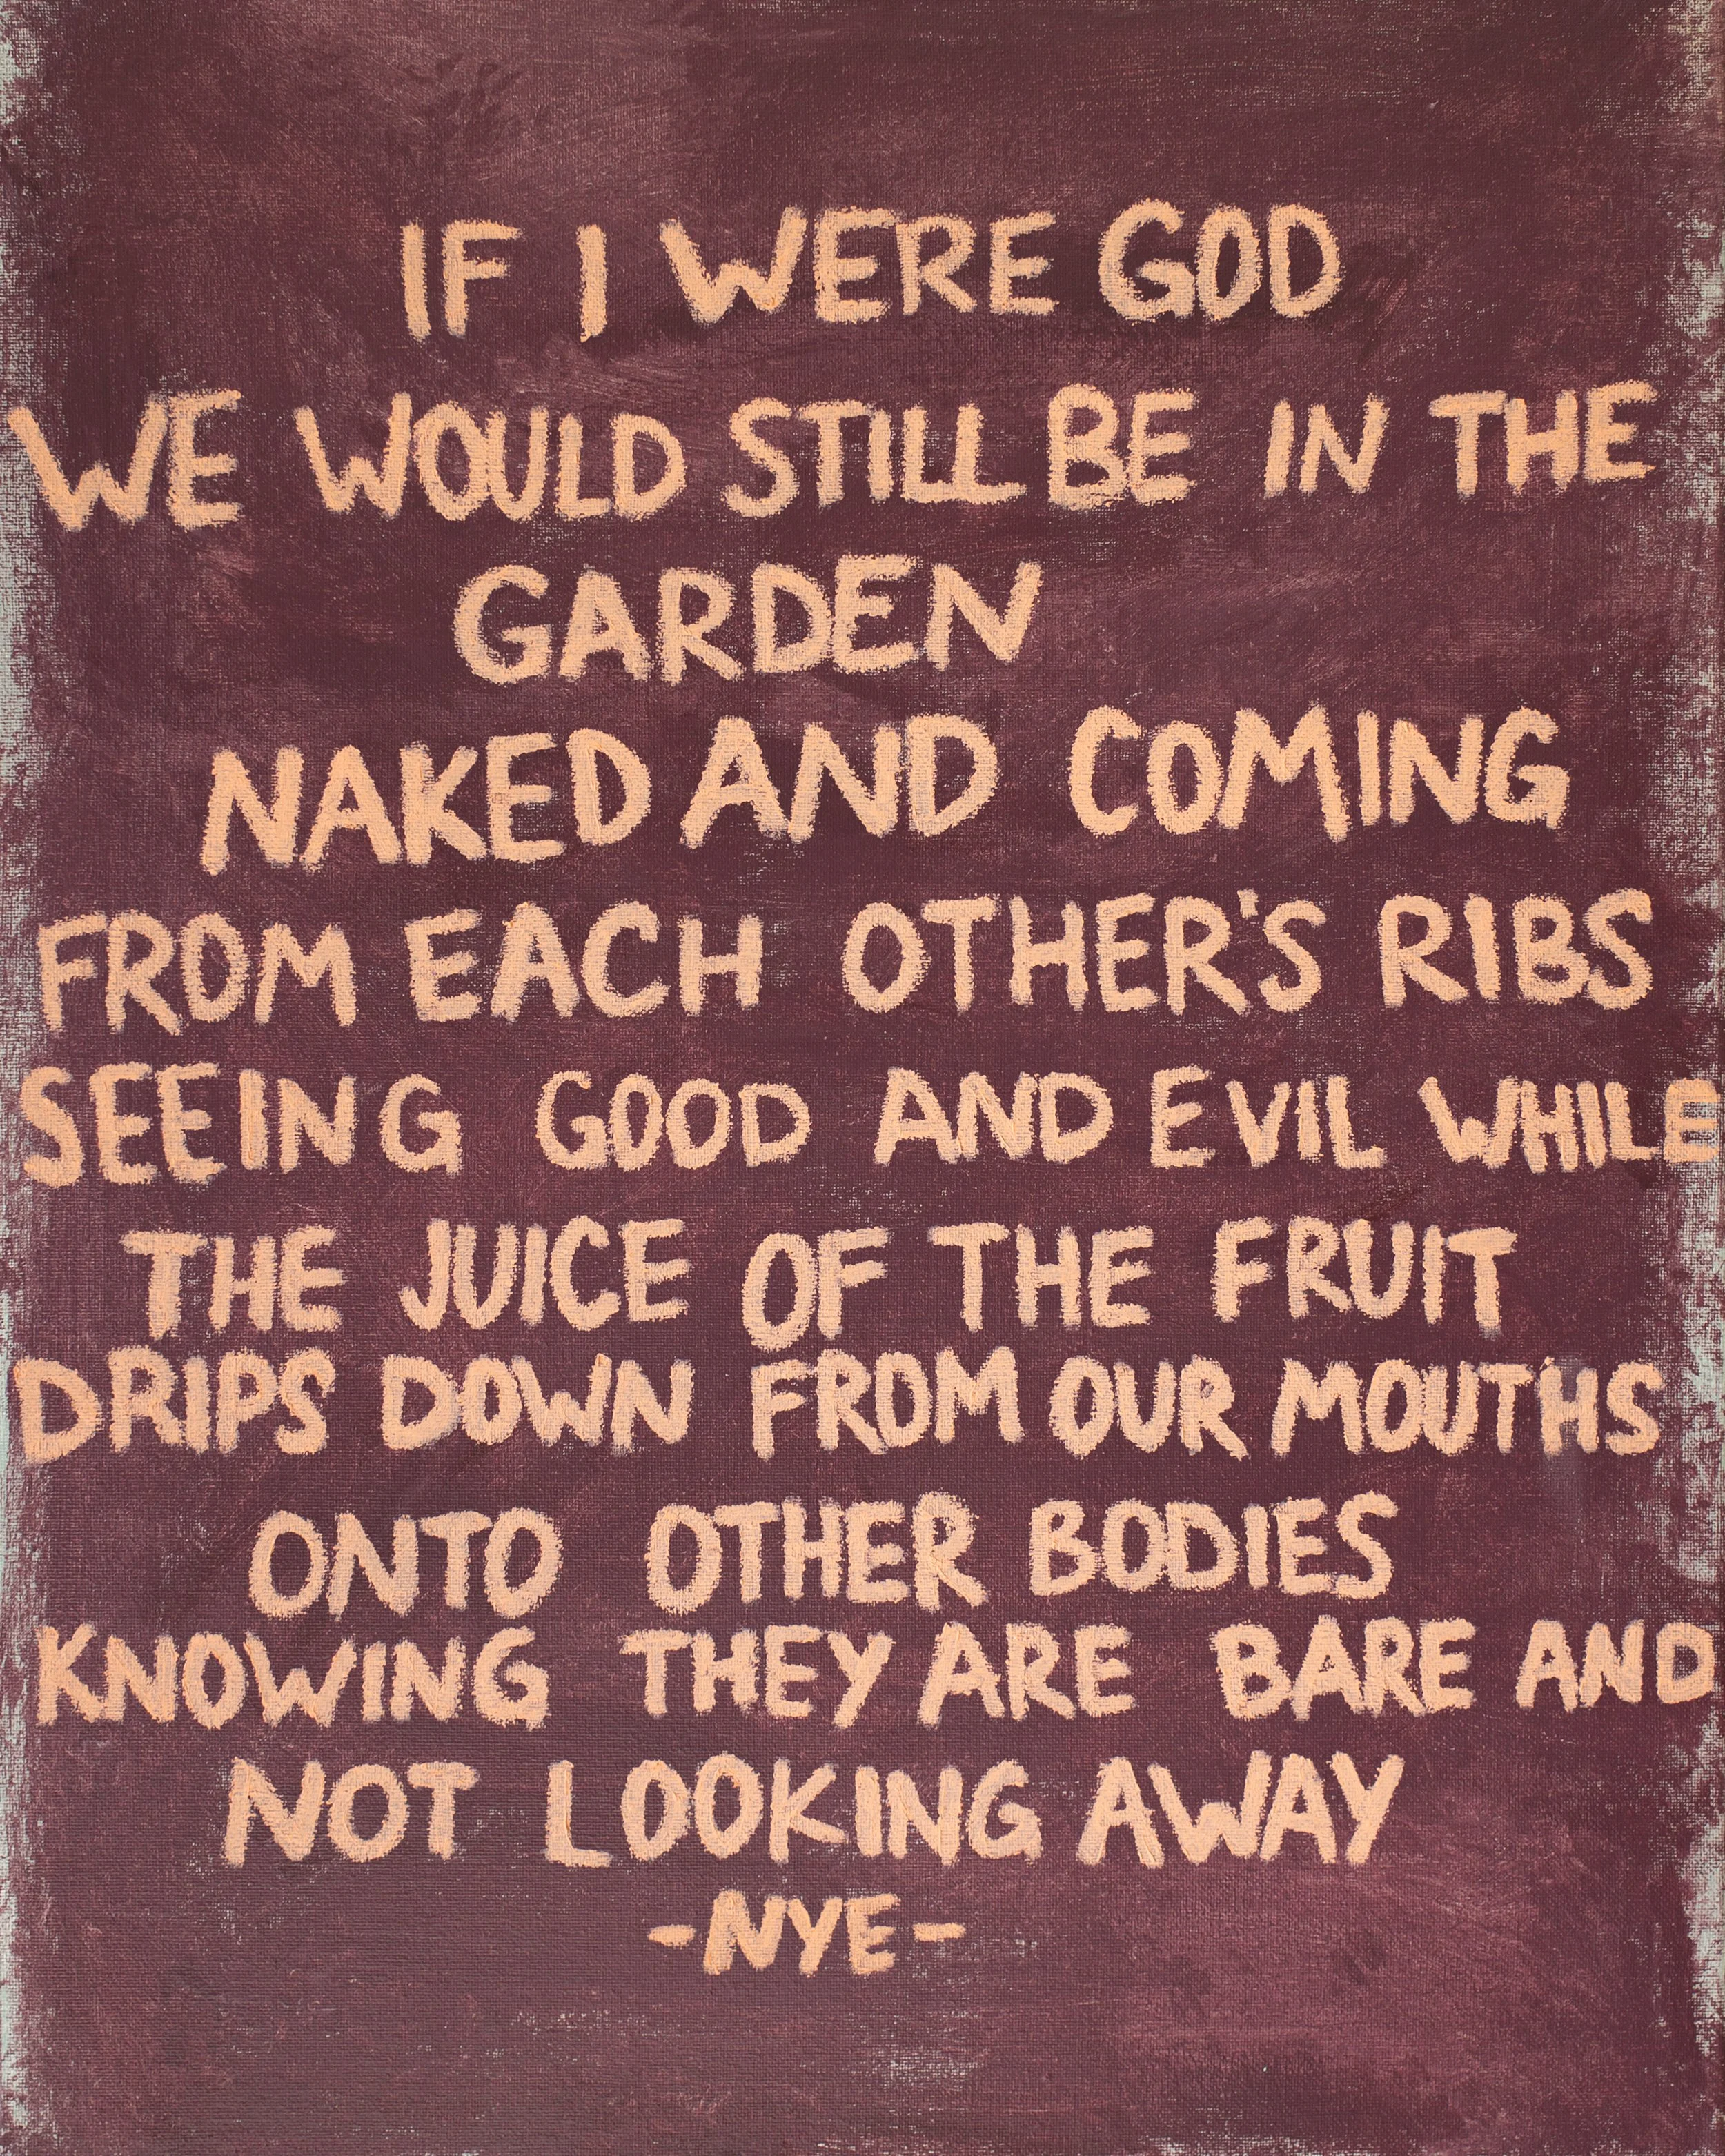 IF I WERE GOD
WE WOULD STILL BE IN THE
GARDEN
NAKED AND COMING
FROM EACH OTHER'S RIBS
SEEING GOOD AND EVIL WHILE
THE JUICE OF THE FRUIT
DRIPS DOWN FROM OUR MOUTHS
ONTO OTHER BODIES
KNOWING THEY ARE BARE AND
NOT LOOKING AWAY
-NYE-